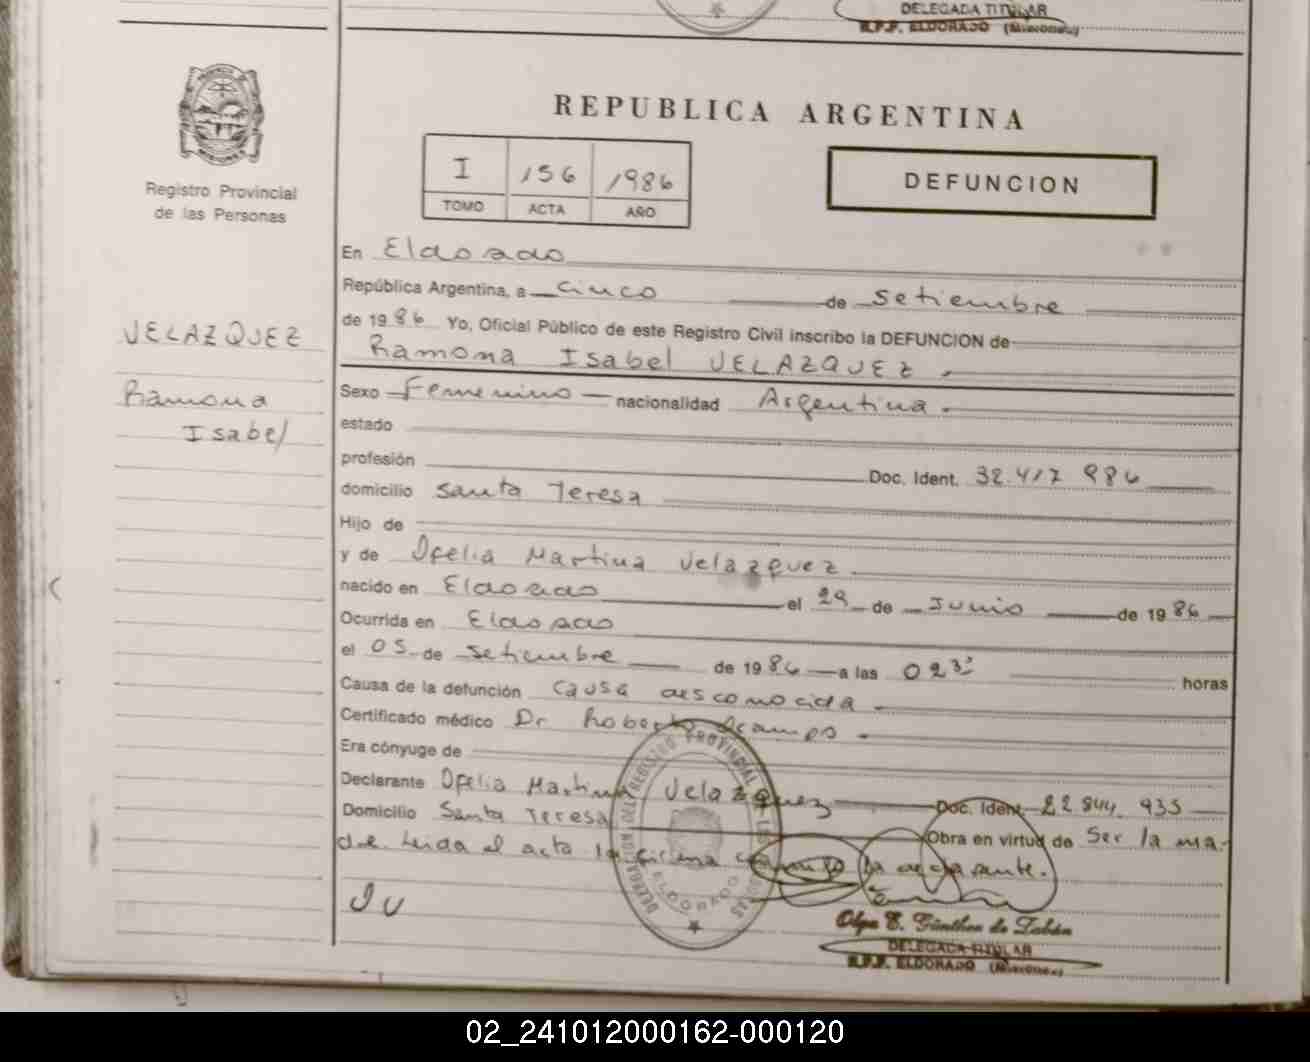 DELEGADA TITULAR
R.P.P. ELDORADO (Misiones)
REPUBLICA ARGENTINA
I 156 1986
TOMO ACTA AÑO
DEFUNCION
Registro Provincial
de las Personas
VELAZQUEZ
Ramona
Isabel
En Eldorado
República Argentina, a cinco de setiembre
de 1986 Yo, Oficial Público de este Registro Civil inscribo la DEFUNCION de
Ramona Isabel VELAZQUEZ.
Sexo Femenino nacionalidad Argentina.
estado
profesión Doc. Ident. 32.417 986
domicilio Santa Teresa
Hijo de
y de Ofelia Martina Velazquez.
nacido en Eldorado el 29 de Junio de 1986
Ocurrida en Eldorado
el 05 de setiembre de 1986 a las 02 30 horas
Causa de la defunción causa desconocida.
Certificado médico Dr Roberto Ocampo.
Era cónyuge de
Declarante Ofelia Martina Velazquez Doc. Ident. 22 844. 935
Domicilio Santa Teresa Obra en virtud de Ser la ma-
dre. Leida el acta la firma conmigo la declarante.
OV
DELEGACION DEL REGISTRO PROVINCIAL DE LAS PERSONAS
ELDORADO
Olga E. Günther de Zabán
DELEGADA TITULAR
R.P.P. ELDORADO (Misiones)
02_241012000162-000120